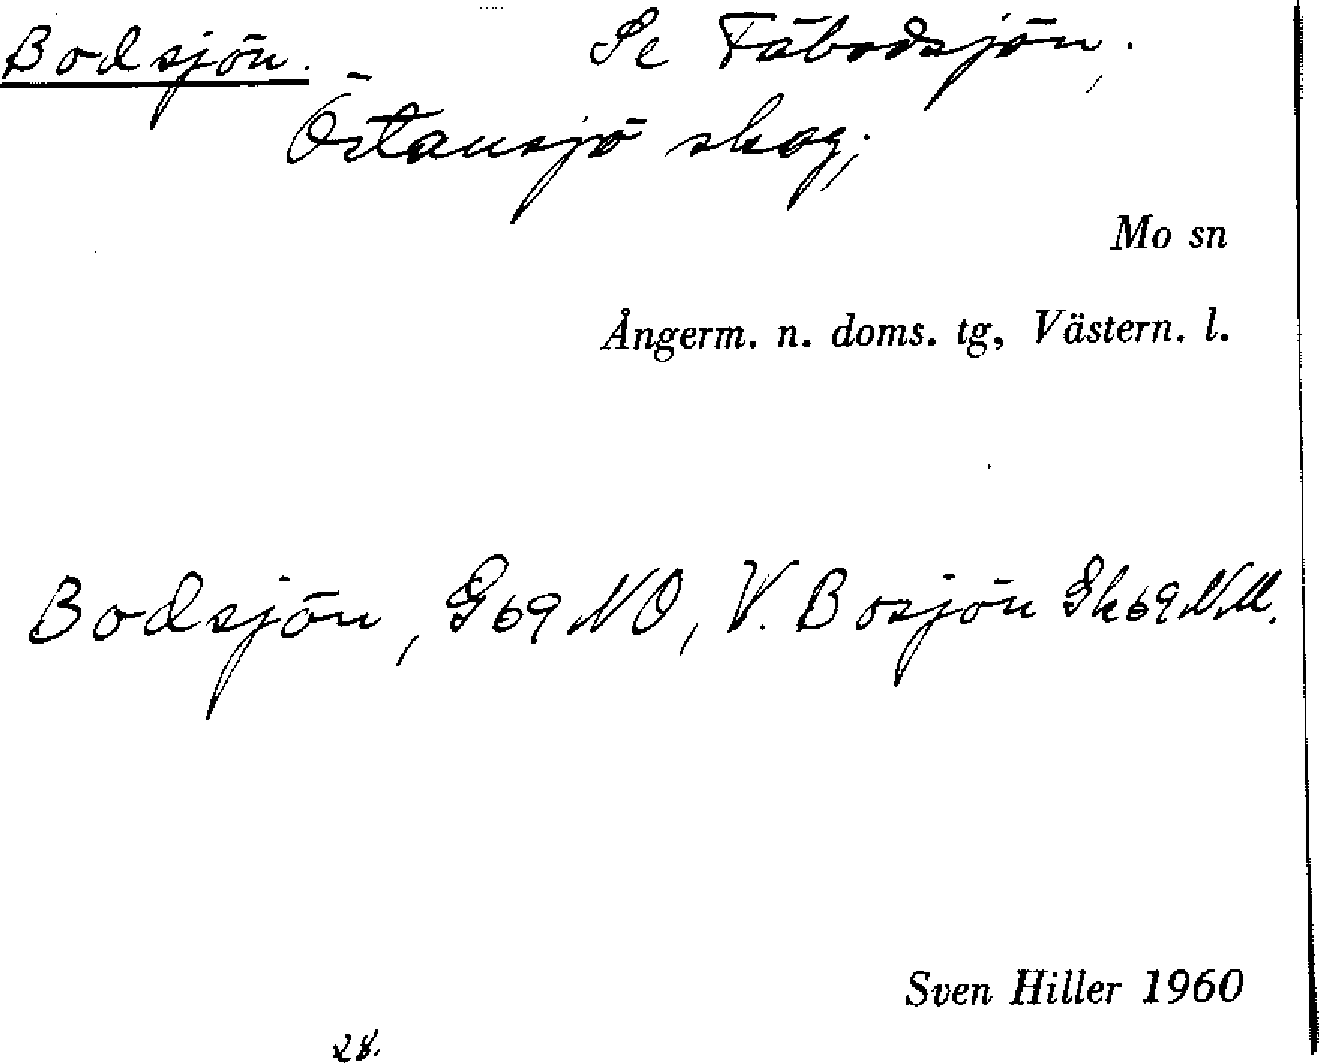 Bodsjön. Se Fäbodsjön,.
Östansjö skog,;
Mo sn
Ångerm. n. doms. tg, Västern. l.
Bodsjön, G 69 NO, V. Bosjön Gk 69 NM.
Sven Hiller 1960
28.